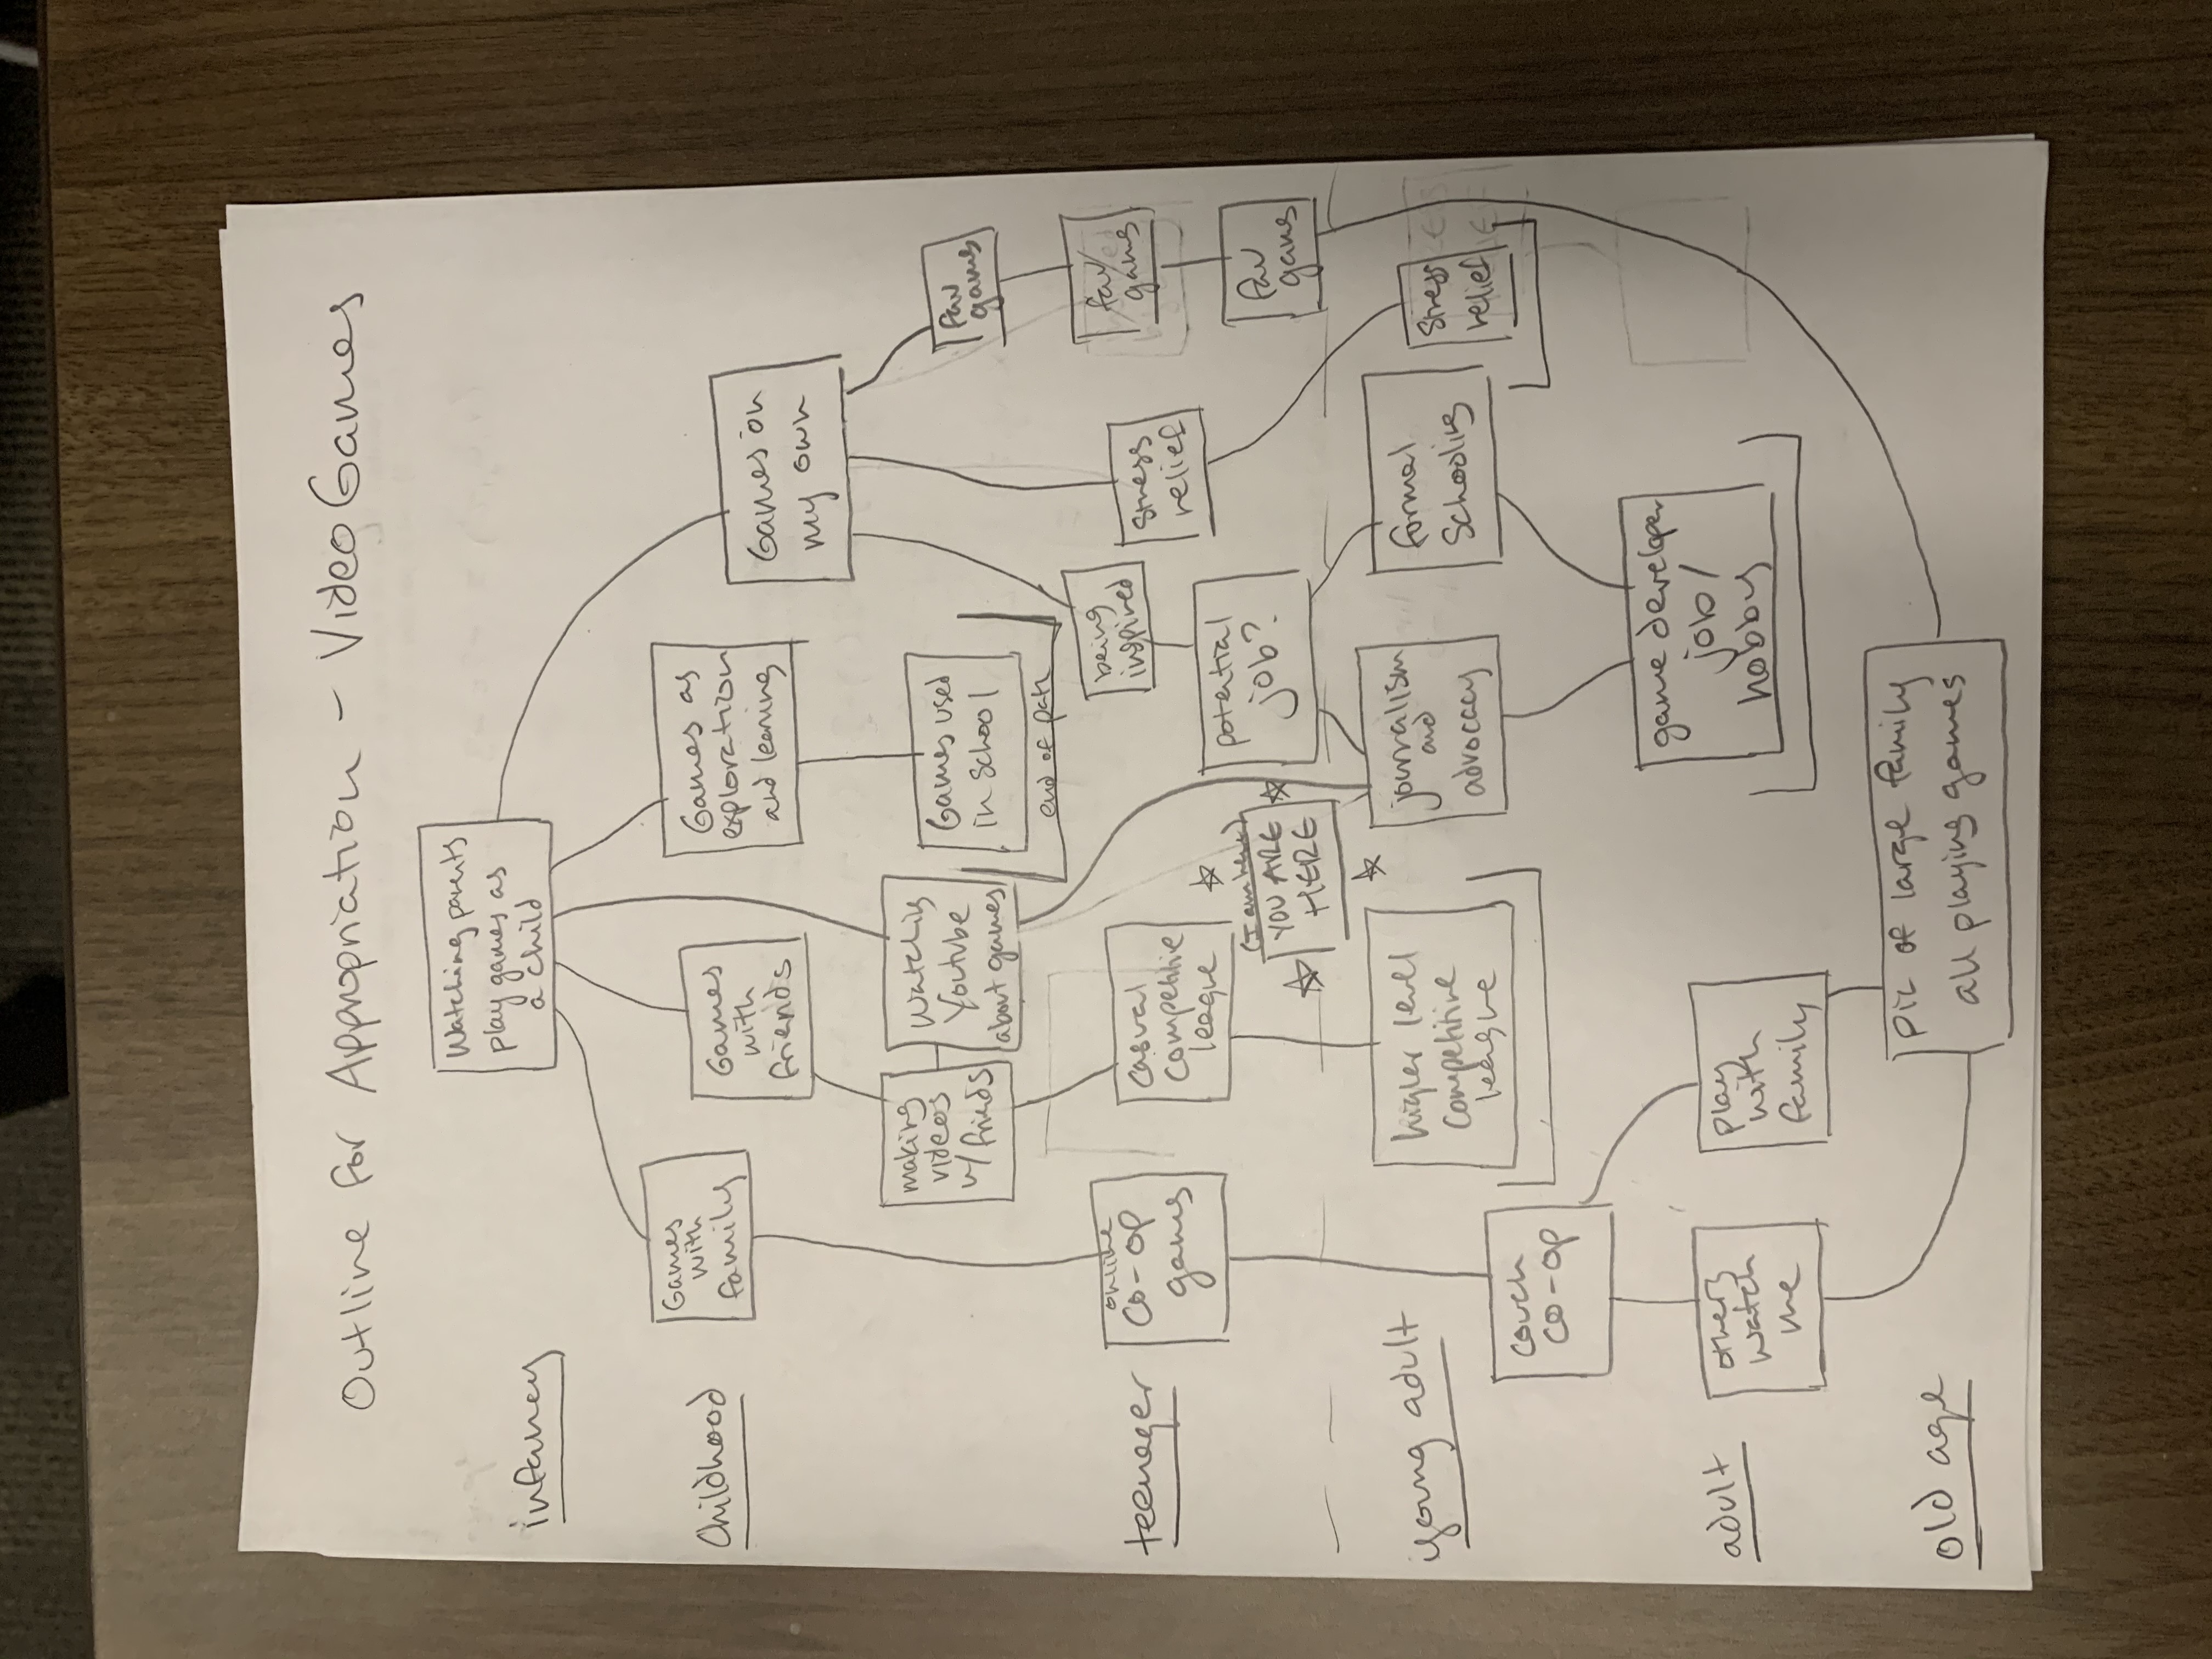 Outline for Appropriation - Video Games
infancy
Watching parents
play games as
a child
Childhood
Games
with
family
Games
with
friends
Games as
exploration
and learning
Games on
my own
making
videos
w/ friends
Watching
Youtube
about games
Games used
in School
end of path
fav
games
teenager
online
co-op
games
casual
competitive
league
being
inspired
stress
relief
fav
games
potential
job?
fav
games
(I am here)
YOU ARE
HERE
young adult
higher level
competitive
league
journalism
and
advocacy
formal
schooling
stress
relief
couch
co-op
adult
others
watch
me
play
with
family
game developer
job/
hobby
old age
pic of large family
all playing games